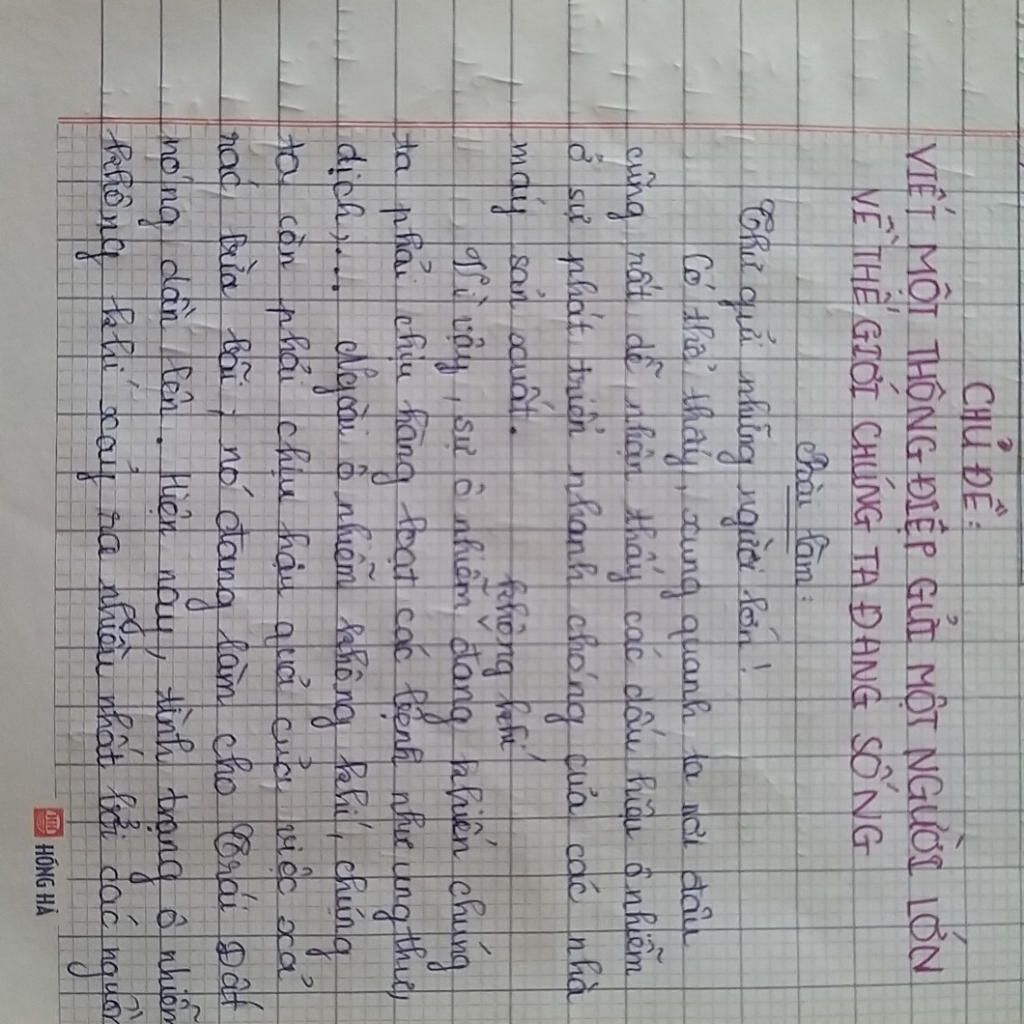 CHỦ ĐỀ:
VIẾT MỘT THÔNG ĐIỆP GỬI MỘT NGƯỜI LỚN
VỀ THẾ GIỚI CHÚNG TA ĐANG SỐNG
Bài làm:
Thư gửi những người lớn!
Có thể thấy, xung quanh ta nơi đâu
cũng rất dễ nhận thấy các dấu hiệu ô nhiễm
ở sự phát triển nhanh chóng của các nhà
máy sản xuất.
không khí
Vì vậy, sự ô nhiễm đang khiến chúng
ta phải chịu hàng loạt các bệnh như ung thư,
dịch,... Ngoài ô nhiễm không khí, chúng
ta còn phải chịu hậu quả của việc xả
rác bừa bãi, nó đang làm cho Trái Đất
nóng dần lên. Hiện nay, tình trạng ô nhiễm
không khí xảy ra nhiều nhất bởi các nguồn
HỒNG HÀ